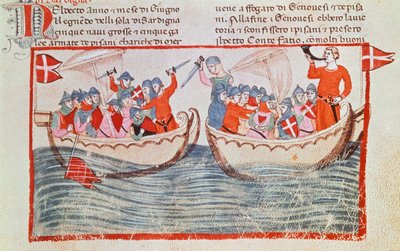 Nel decto Anno e mese di Giugno
il Segno de telli sola di Sardigna
cinque navi grosse e cinque ga
lee armate te pisani chariche di Mer
vene affogare di Genovesi e te pisa
ni. Alla fine i Genovesi ebbero la vic
toria e sconfissero i pisani e presero
il detto Conte Fatio, co molti buoni